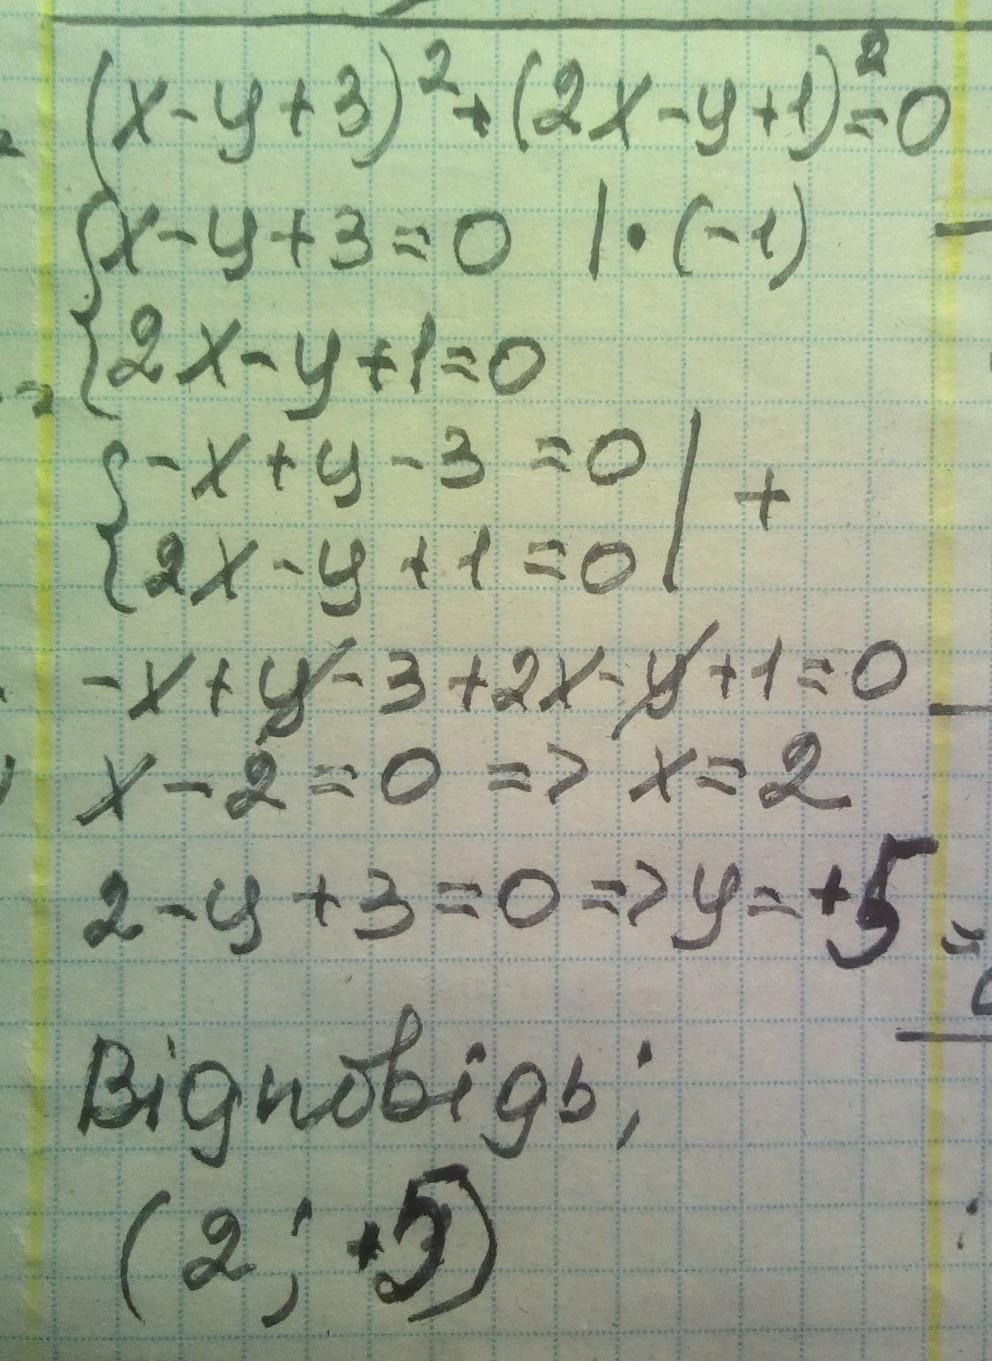 (x-y+3)²+(2x-y+1)²=0
{x-y+3=0 |•(-1)
{2x-y+1=0
{-x+y-3=0 | +
{2x-y+1=0
-x+y-3+2x-y+1=0
x-2=0 => x=2
2-y+3=0=>y=+5
Відповідь;
(2;+5)